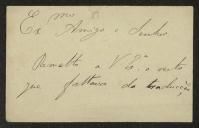 Ex.mo Amigo e Senhor
Remetto a V. Ex.a o resto
que faltava da traducção,